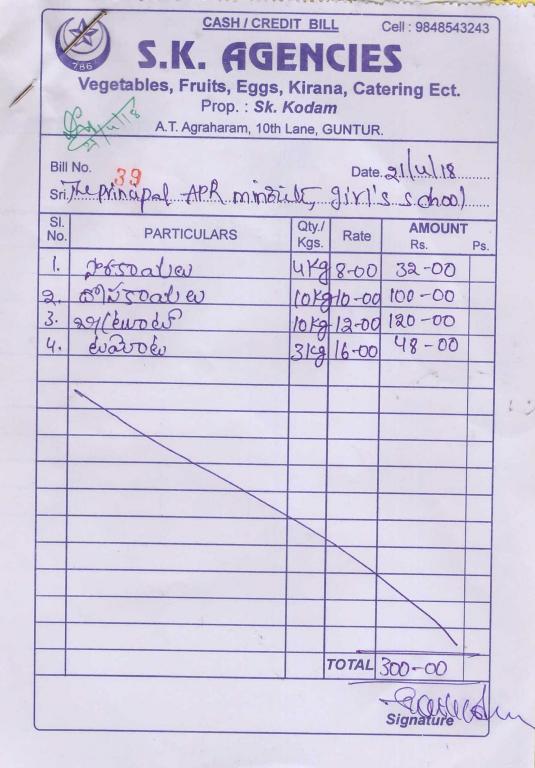 CASH / CREDIT BILL
Cell : 9848543243
786
S.K. AGENCIES
Vegetables, Fruits, Eggs, Kirana, Catering Ect.
Prop. : Sk. Kodam
A.T. Agraharam, 10th Lane, GUNTUR.
21/4/18
Bill No. 39
Date. 21/4/18
Sri. The principal APR minority girl's school
Sl. No. PARTICULARS Qty./ Kgs. Rate AMOUNT Rs. Ps.
1. 4Kg 8-00 32-00
2. 10Kg 10-00 100-00
3. 10Kg 12-00 120-00
4. 3Kg 16-00 48-00
TOTAL 300-00
Signature